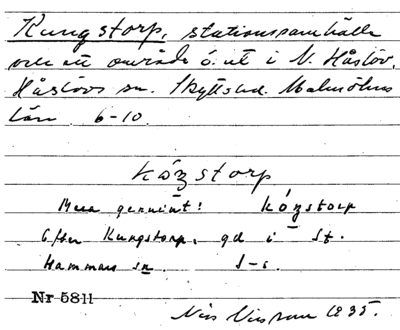 Kungstorp, stationssamhälle
och ett område ö. ut i V. Håslöv,
Håslövs sn. Skyttshd. Malmöhus
län. 6-10.
kóŋstorp
Mera genuint! kóŋstorp
Efter Kungstorp, gd i St.
Hammars sn.
Nr 5811
Nils Nilsson 1935.